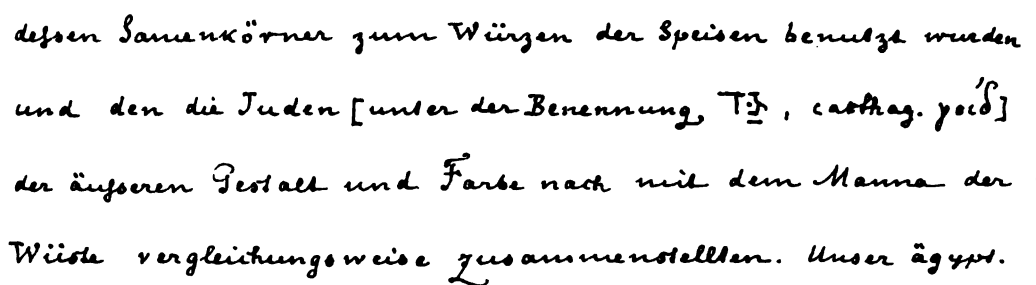 dessen Samenkörner zum Würzen der Speisen benutzt wurden
und den die Juden [unter der Benennung גַּד, carthag. γοίδ]
der äusseren Gestalt und Farbe nach mit dem Manna der
Wüste vergleichungsweise zusammenstellten. Unser ägypt.